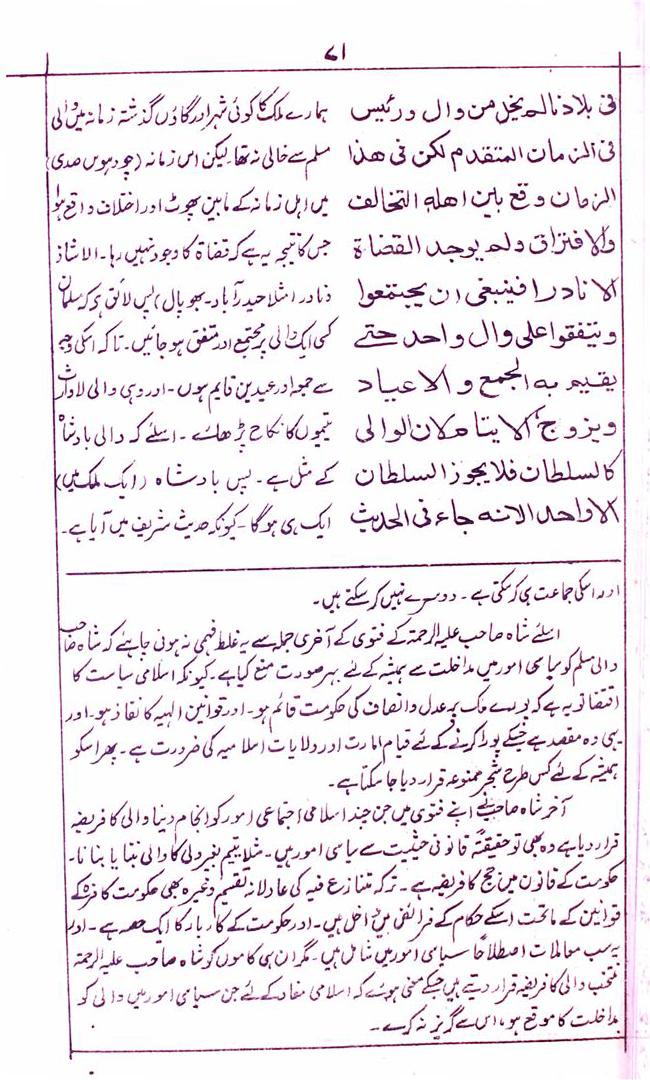 ۷۱
فی بلادنا لم یخل من وال ورئیس
فی الزمان المتقدم لکن فی هذا
الزمان وقع بین اهله التخالف
والافتراق ولم یوجد القضاة
الا نادرا فینبغی ان یجتمعوا
ویتفقوا علی وال واحد حتے
یقیم به الجمع و الاعیاد
ویزوج الایتام لان الوالی
کالسلطان فلا یجوز السلطان
الا واحد لانه جاء فی الحدیث
ہمارے ملک کا کوئی شہر اور گاؤں گذشتہ زمانہ میں والی
مسلم سے خالی نہ تھا۔ لیکن اس زمانہ (چودہویں صدی)
میں اہل زمانہ کے مابین پھوٹ اور اختلاف واقع ہوا
جس کا نتیجہ یہ ہے کہ قضاة کا وجود نہیں رہا۔ الا شاذ
ونادر (مثلا حیدرآباد۔ بھوپال) پس لائق ہے کہ مسلمان
کسی ایک والی پر مجتمع اور متفق ہو جائیں۔ تاکہ اسکی وجہ
سے جمعہ اور عیدین قایم ہوں۔ اور وہی والی لاوارث
یتیموں کا نکاح پڑھائے۔ اسلئے کہ والی بادشاہ
کے مثل ہے۔ پس بادشاہ (ایک ملک میں)
ایک ہی ہوگا۔ کیونکہ حدیث شریف میں آیا ہے۔
اور اسکی جماعت ہی کر سکتی ہے۔ دوسرے نہیں کر سکتے ہیں۔
اسلئے شاہ صاحب علیہ الرحمۃ کے فتوی کے آخری جملہ سے یہ غلط فہمی نہ ہونی چاہئے کہ شاہ صاحب
والی مسلم کو سیاسی امور میں مداخلت سے ہمیشہ کے لئے بہر صورت منع کیا ہے۔ کیونکہ اسلامی سیاست کا
اقتضا تو یہ ہے کہ پورے ملک پر عدل و انصاف کی حکومت قائم ہو۔ اور قوانین الہیہ کا نفاذ ہو۔ اور
یہی وہ مقصد ہے جسکے پورا کرنے کے لئے قیام امارت اور ولایات اسلامیہ کی ضرورت ہے۔ پھر اسکو
ہمیشہ کے لئے کس طرح شجر ممنوعہ قرار دیا جا سکتا ہے۔
آخر شاہ صاحب نے اپنے فتوی میں جن چند اسلامی اجتماعی امور کو انجام دینا والی کا فریضہ
قرار دیا ہے وہ بھی تو حقیقتہً قانونی حیثیت سے سیاسی امور ہیں۔ مثلا یتیم بغیر ولی کا والی بننا یا بنانا۔
حکومت کے قانون میں جج کا فریضہ ہے۔ ترکہ متنازع فیہ کی عادلانہ تقسیم وغیرہ بھی حکومت کافرہ کے
قوانین کے ماتحت اسکے حکام کے فرائض میں داخل ہیں۔ اور حکومت کے کاروبار کا ایک حصہ ہے۔ اور
یہ سب معاملات اصطلاحاً سیاسی امور میں شامل ہیں۔ مگر ان ہی کاموں کو شاہ صاحب علیہ الرحمۃ
منتخب والی کا فریضہ قرار دیتے ہیں جسکے معنی ہوئے کہ اسلامی مفاد کے لئے جن سیاسی امور میں والی کو
مداخلت کا موقع ہو، اس سے گریز نہ کرے۔